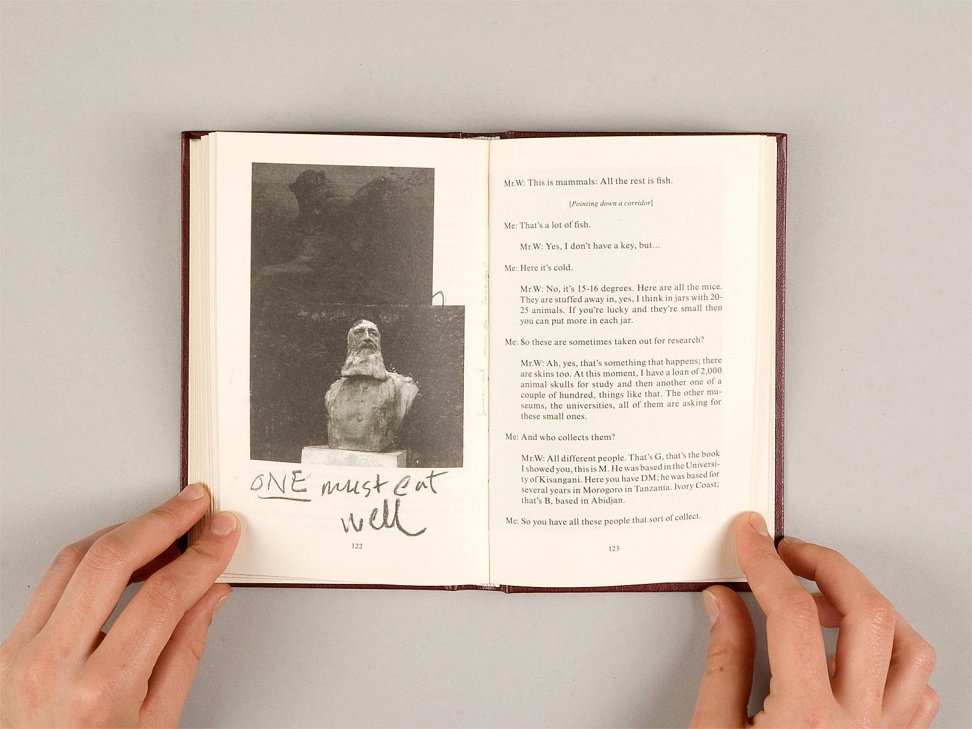 ONE must eat
well
122
Mr.W: This is mammals: All the rest is fish.
[Pointing down a corridor]
Me: That's a lot of fish.
Mr.W: Yes, I don't have a key, but...
Me: Here it's cold.
Mr.W: No, it's 15-16 degrees. Here are all the mice.
They are stuffed away in, yes, I think in jars with 20-
25 animals. If you're lucky and they're small then
you can put more in each jar.
Me: So these are sometimes taken out for research?
Mr.W: Ah, yes, that's something that happens; there
are skins too. At this moment, I have a loan of 2,000
animal skulls for study and then another one of a
couple of hundred, things like that. The other mu-
seums, the universities, all of them are asking for
these small ones.
Me: And who collects them?
Mr.W: All different people. That's G, that's the book
I showed you, this is M. He was based in the Universi-
ty of Kisangani. Here you have DM; he was based for
several years in Morogoro in Tanzania. Ivory Coast;
that's B, based in Abidjan.
Me: So you have all these people that sort of collect.
123